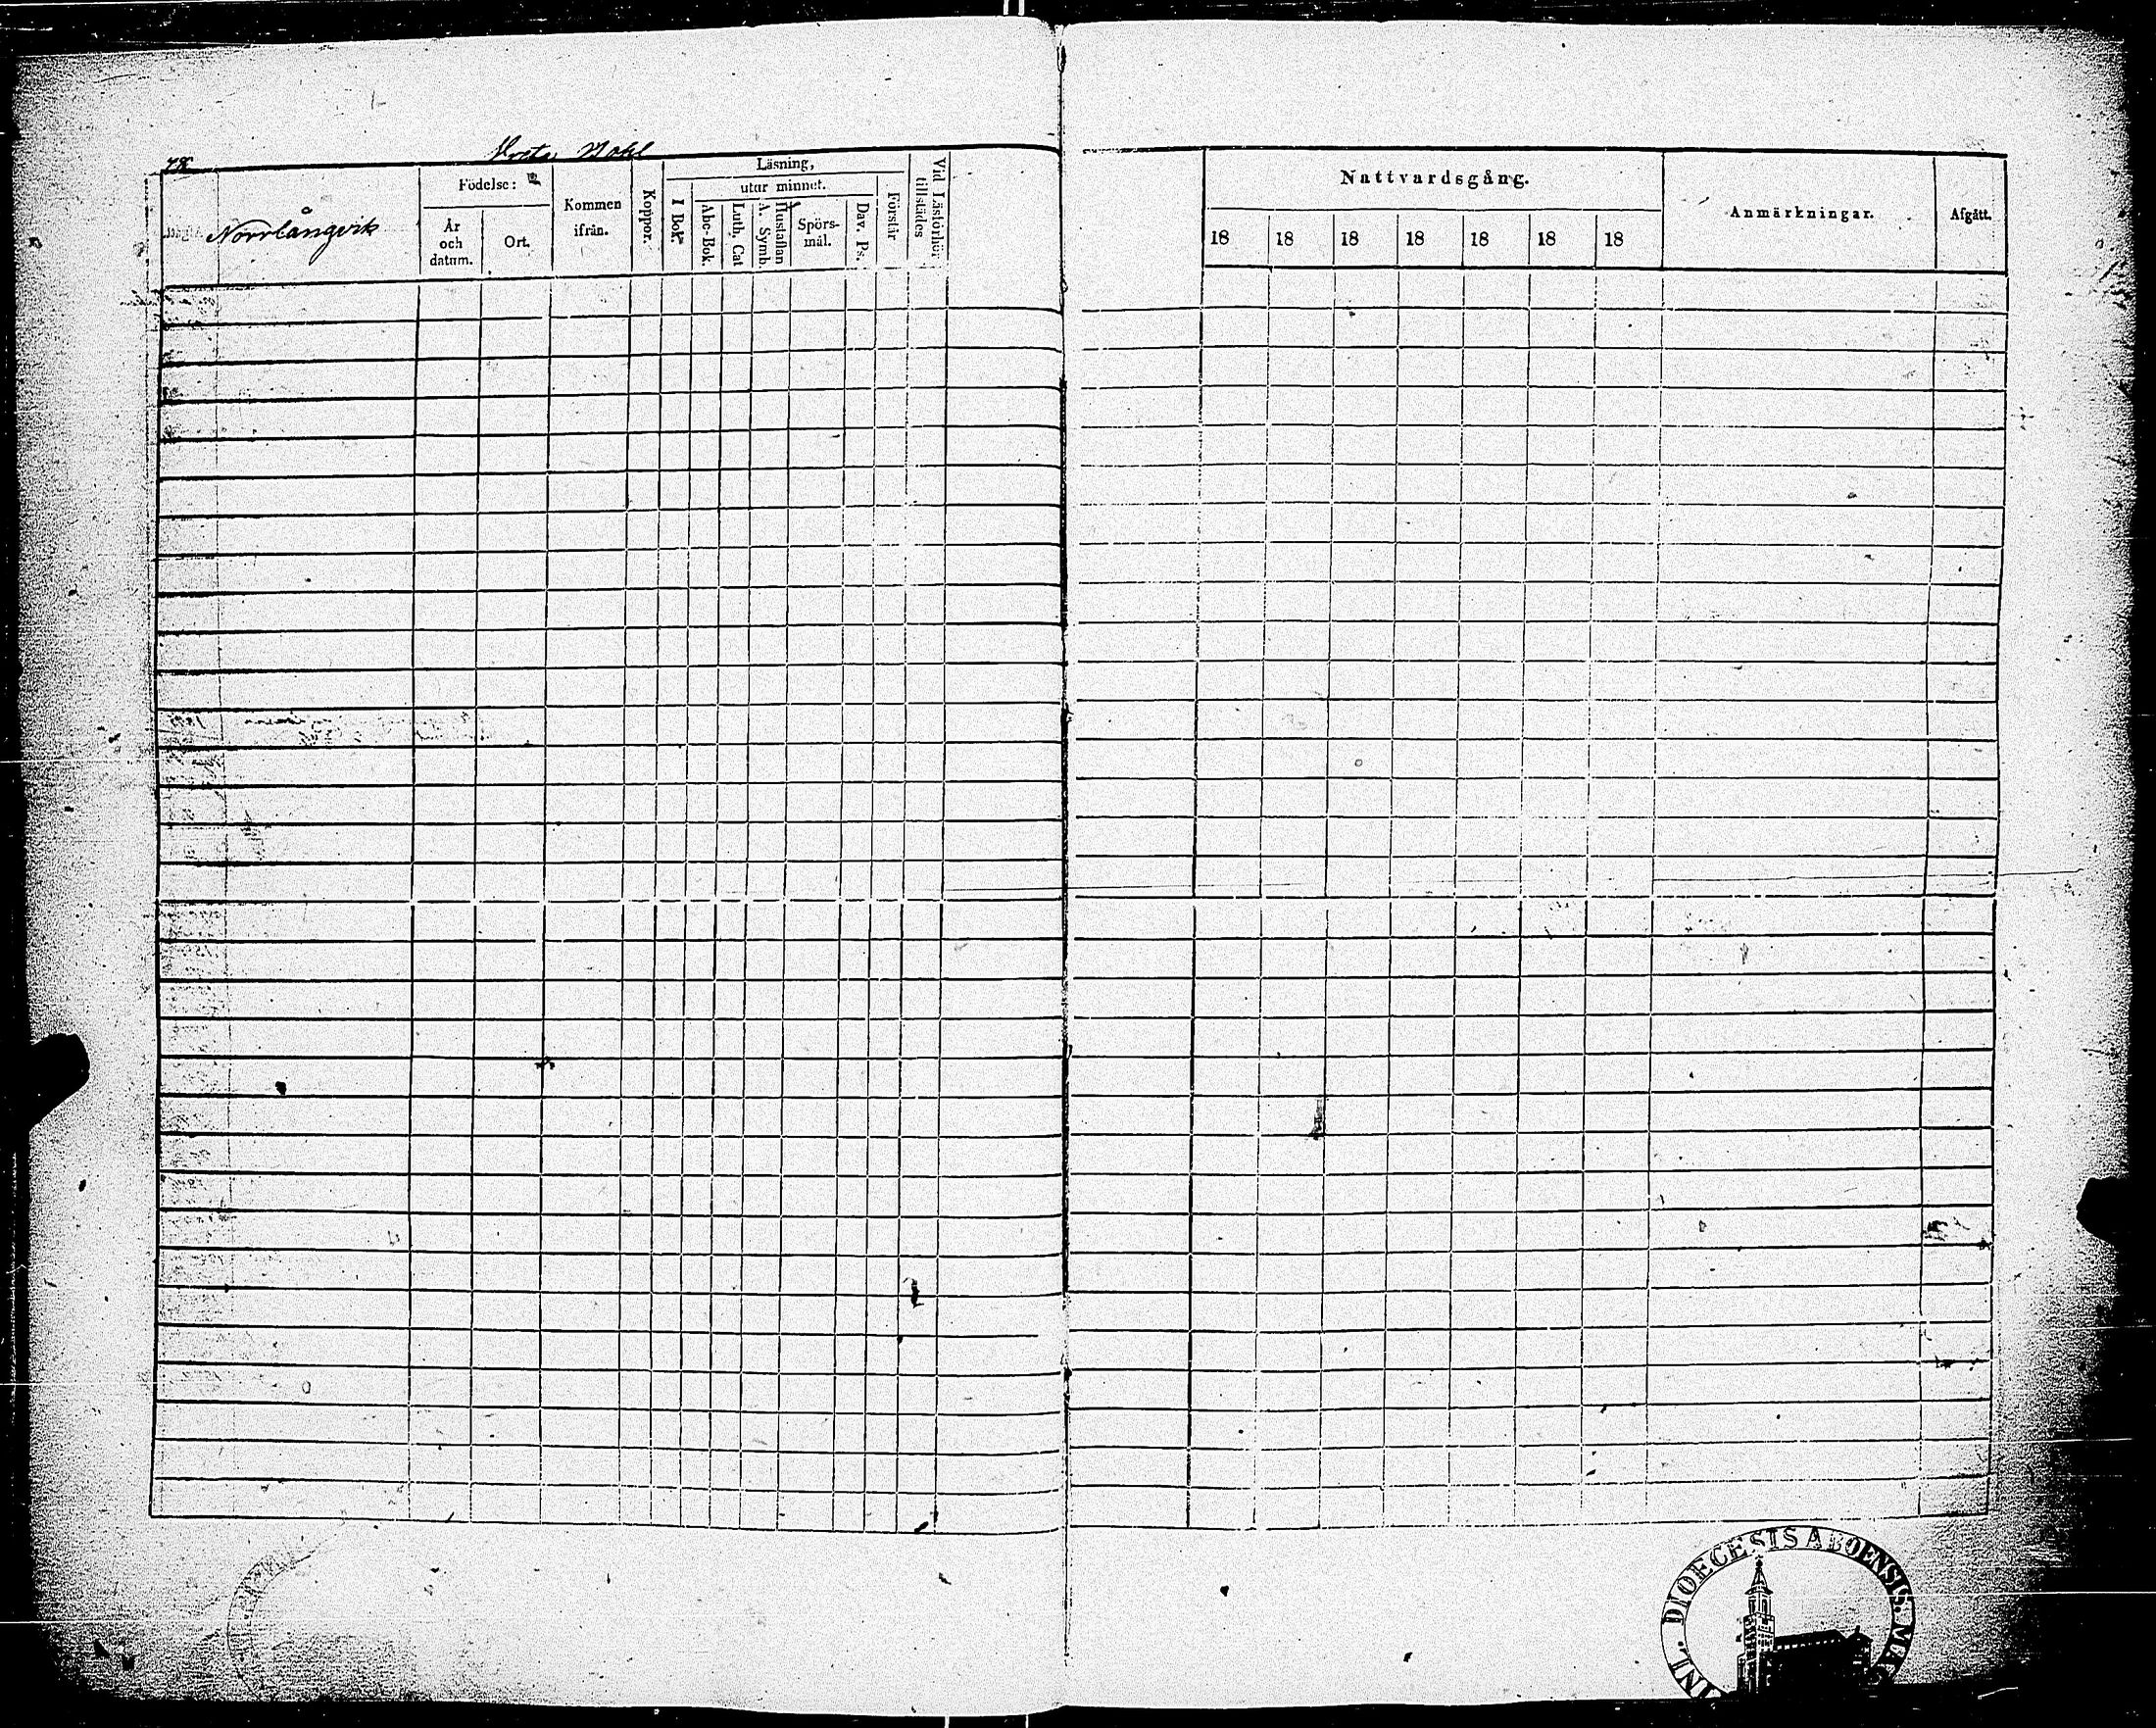 78
Norrlångvik
Födelse:
År och datum.
Ort.
Kommen ifrån.
Koppor.
Läsning,
utur minnet.
I Bok.
Abc-Bok.
Luth. Cat
A. Symb.
Hustaflan
Spörs-mål.
Dav. Ps.
Förstår
Vid Läsförhör tillstädes
Nattvardsgång.
18 18 18 18 18 18 18
Anmärkningar.
Afgått.
DIOECESIS ABOENSIS.